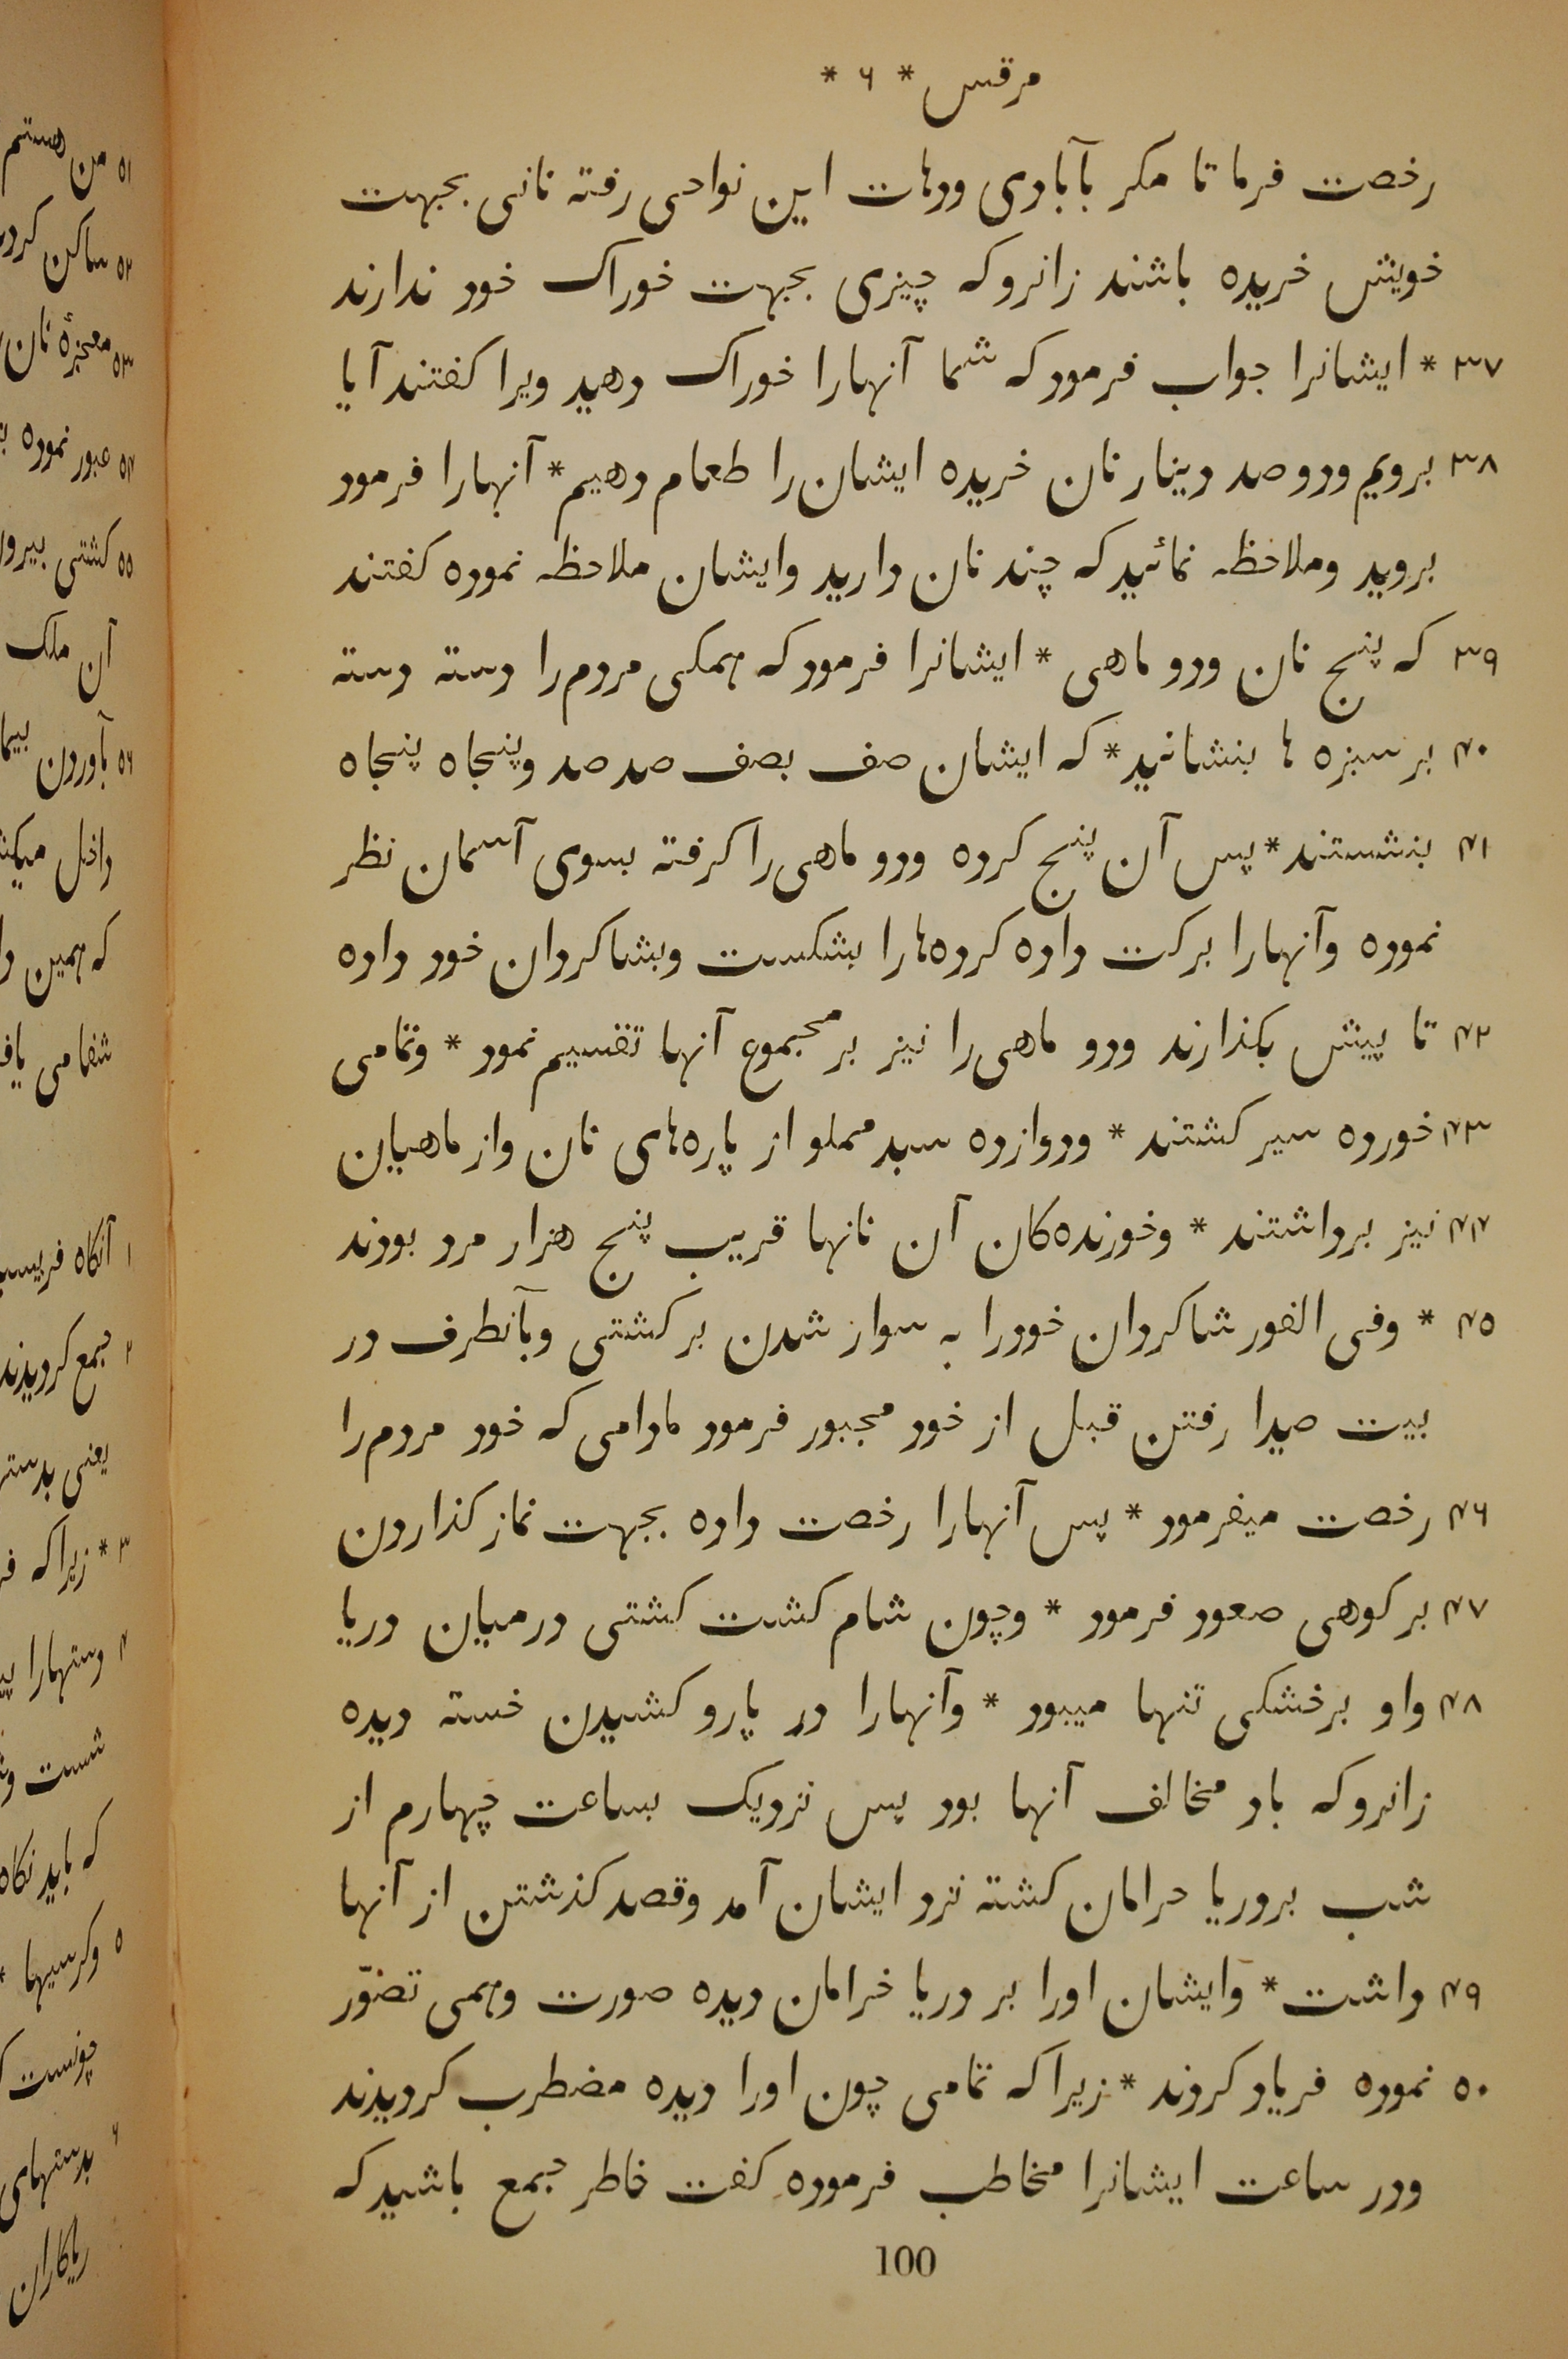 مرقس * ۶ *
رخصت فرما تا مکر بآبادی ودهات این نواحی رفته نانی بجهت
خویش خریده باشند زانرو که چیزی بجهت خوراک خود ندارند
۳۷ * ایشانرا جواب فرمود که شما آنهارا خوراک دهید ویرا کفتند آیا
۳۸ برویم ودو صد دینار نان خریده ایشان را طعام دهیم * آنهارا فرمود
بروید وملاخظه نمائید که چند نان دارید وایشان ملاحظه نموده کفتند
۳۹ که پنج نان ودو ماهی * ایشانرا فرمود که همکی مردم را دسته دسته
۴۰ بر سبزه ها بنشانید * که ایشان صف بصف صد صد وپنجاه پنجاه
۴۱ بنشستند * پس آن پنج کرده ودو ماهی را کرفته بسوی آسمان نظر
نموده وآنهارا برکت داده کرده‌هارا بشکست وبشاکردان خود داده
۴۲ تا پیش بکذارند ودو ماهی را نیز بر مجموع آنها تقسیم نمود * وتمامی
۴۳ خورده سیر کشتند * ودوازده سبد مملو از پاره‌های نان واز ماهیان
۴۴ نیز برداشتند * وخورنده‌کان آن نانها قریب پنج هزار مرد بودند
۴۵ * وفی الفور شاکردان خودرا به سوار شدن بر کشتی وبآنطرف در
بیت صیدا رفتن قبل از خود مجبور فرمود مادامی که خود مردم را
۴۶ رخصت میفرمود * پس آنهارا رخصت داده بجهت نماز کذاردن
۴۷ بر کوهی صعود فرمود * وچون شام کشت کشتی درمیان دریا
۴۸ واو برخشکی تنها میبود * وآنهارا در پارو کشیدن خسته دیده
زانرو که باد مخالف آنها بود پس نزدیک بساعت چهارم از
شب بردریا حرامان کشته نزد ایشان آمد وقصد کذشتن از آنها
۴۹ داشت * وایشان اورا بر دریا خرامان دیده صورت وهمی تضوّر
۵۰ نموده فریاد کردند * زیرا که تمامی چون اورا دیده مضطرب کردیدند
ودر ساعت ایشانرا مخاطب فرموده کفت خاطر جمع باشید که
100
۵۱ من هستم
۵۲ ساکن
۵۳ معجزهٔ نان
۵۴ عبور نموده
۵۵ کشتی
آن ملک
۵۶ بآوردن
داخل
که همین
شفا می
۱ آنکاه
۲ جمع کردیدند
یعنی
۳ * زیرا که
۴ دستهارا
شست
که باید نکاه
۵ وکرسیها *
چونست
۶ بدستهای
ریاکاران